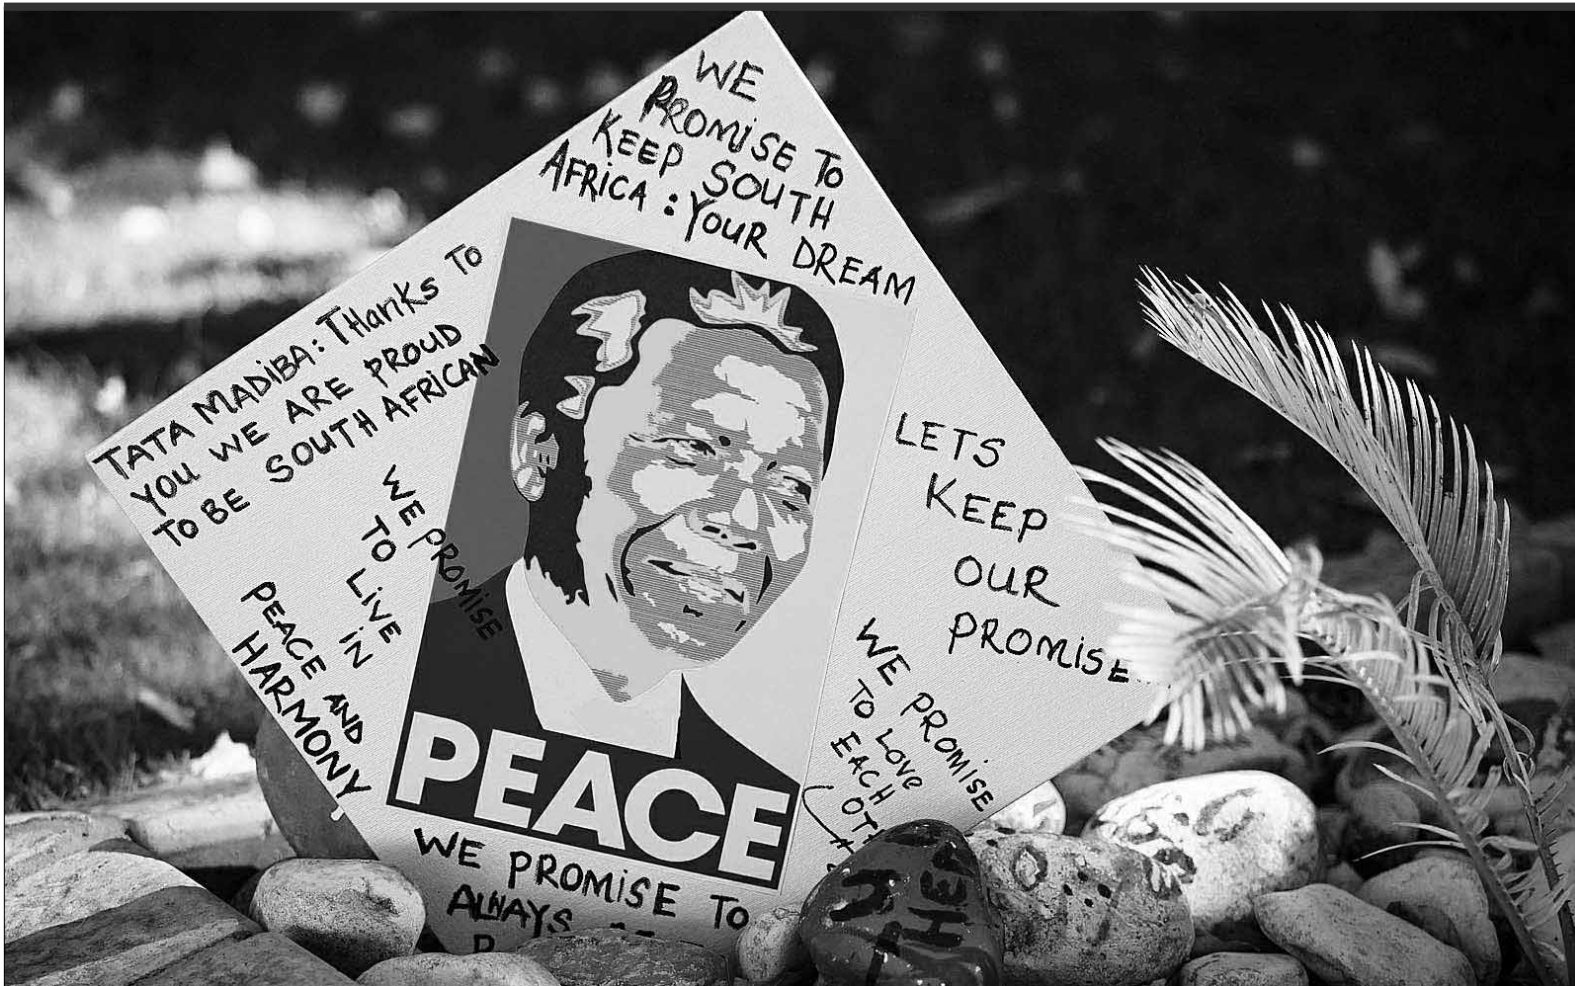 WE
PROMISE TO
KEEP SOUTH
AFRICA : YOUR DREAM
TATA MADIBA: THANKS TO
YOU WE ARE PROUD
TO BE SOUTH AFRICAN
WE PROMISE
TO LIVE
IN
PEACE AND
HARMONY
LETS
KEEP
OUR
PROMISE...
WE PROMISE
TO LOVE
EACH
PEACE
WE PROMISE TO
ALWAYS